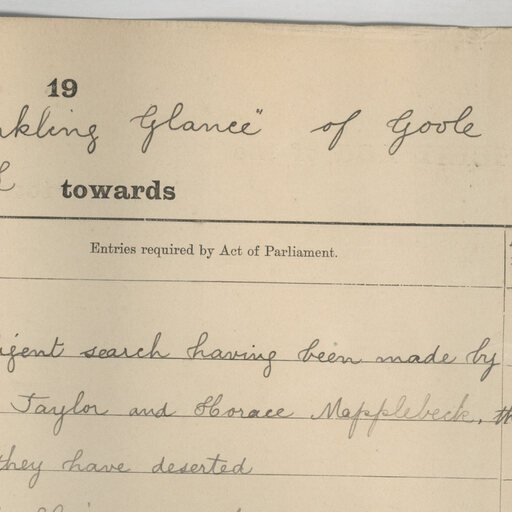 19
kling Glance" of Goole
towards
Entries required by Act of Parliament.
igent search having been made by
Taylor and Horace Mapplebeck, th
they have deserted